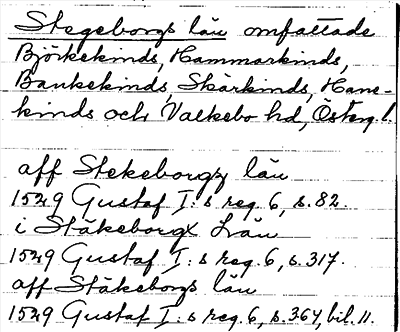 Stegeborgs län omfattade
Björkekinds, Hammarkinds,
Bankekinds, Skärkinds, Hane-
kinds och Valkebo hd, Österg.l.
aff Stekeborgz län
1529 Gustaf I:s reg. 6, s. 82.
i Stäkeborgx Län
1529 Gustaf I:s reg. 6, s. 317.
aff Stäkeborgs län
1529 Gustaf I:s reg. 6, s. 364 bil. 11.